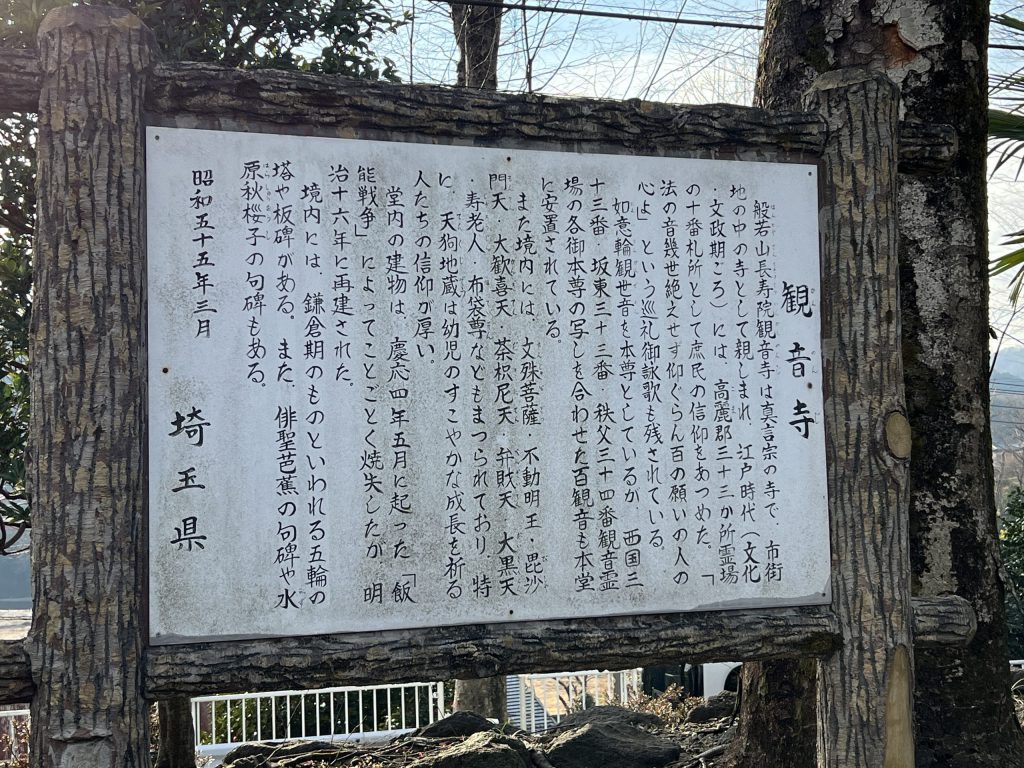 観音寺
かんのんじ
般若山長寿院観音寺は真言宗の寺で、市街
地の中の寺として親しまれ、江戸時代（文化
・文政期ごろ）には、高麗郡三十三か所霊場
の十番札所として庶民の信仰をあつめた。「
法の音幾世絶えせず仰ぐらん百の願いの人の
心よ」という巡礼御詠歌も残されている。
如意輪観世音を本尊としているが、西国三
十三番・坂東三十三番・秩父三十四番観音霊
場の各御本尊の写しを合わせた百観音も本堂
に安置されている。
また境内には、文殊菩薩・不動明王・毘沙
門天・大歓喜天・茶枳尼天・弁財天・大黒天
・寿老人・布袋尊などもまつられており、特
に、天狗地蔵は幼児のすこやかな成長を祈る
人たちの信仰が厚い。
堂内の建物は、慶応4年五月に起った「飯
能戦争」によってことごとく焼失したが、明
治十六年に再建された。
境内には、鎌倉期のものといわれる五輪の
塔や板碑がある。また、俳聖芭蕉の句碑や水
原秋桜子の句碑もある。
昭和五十五年三月
埼玉県